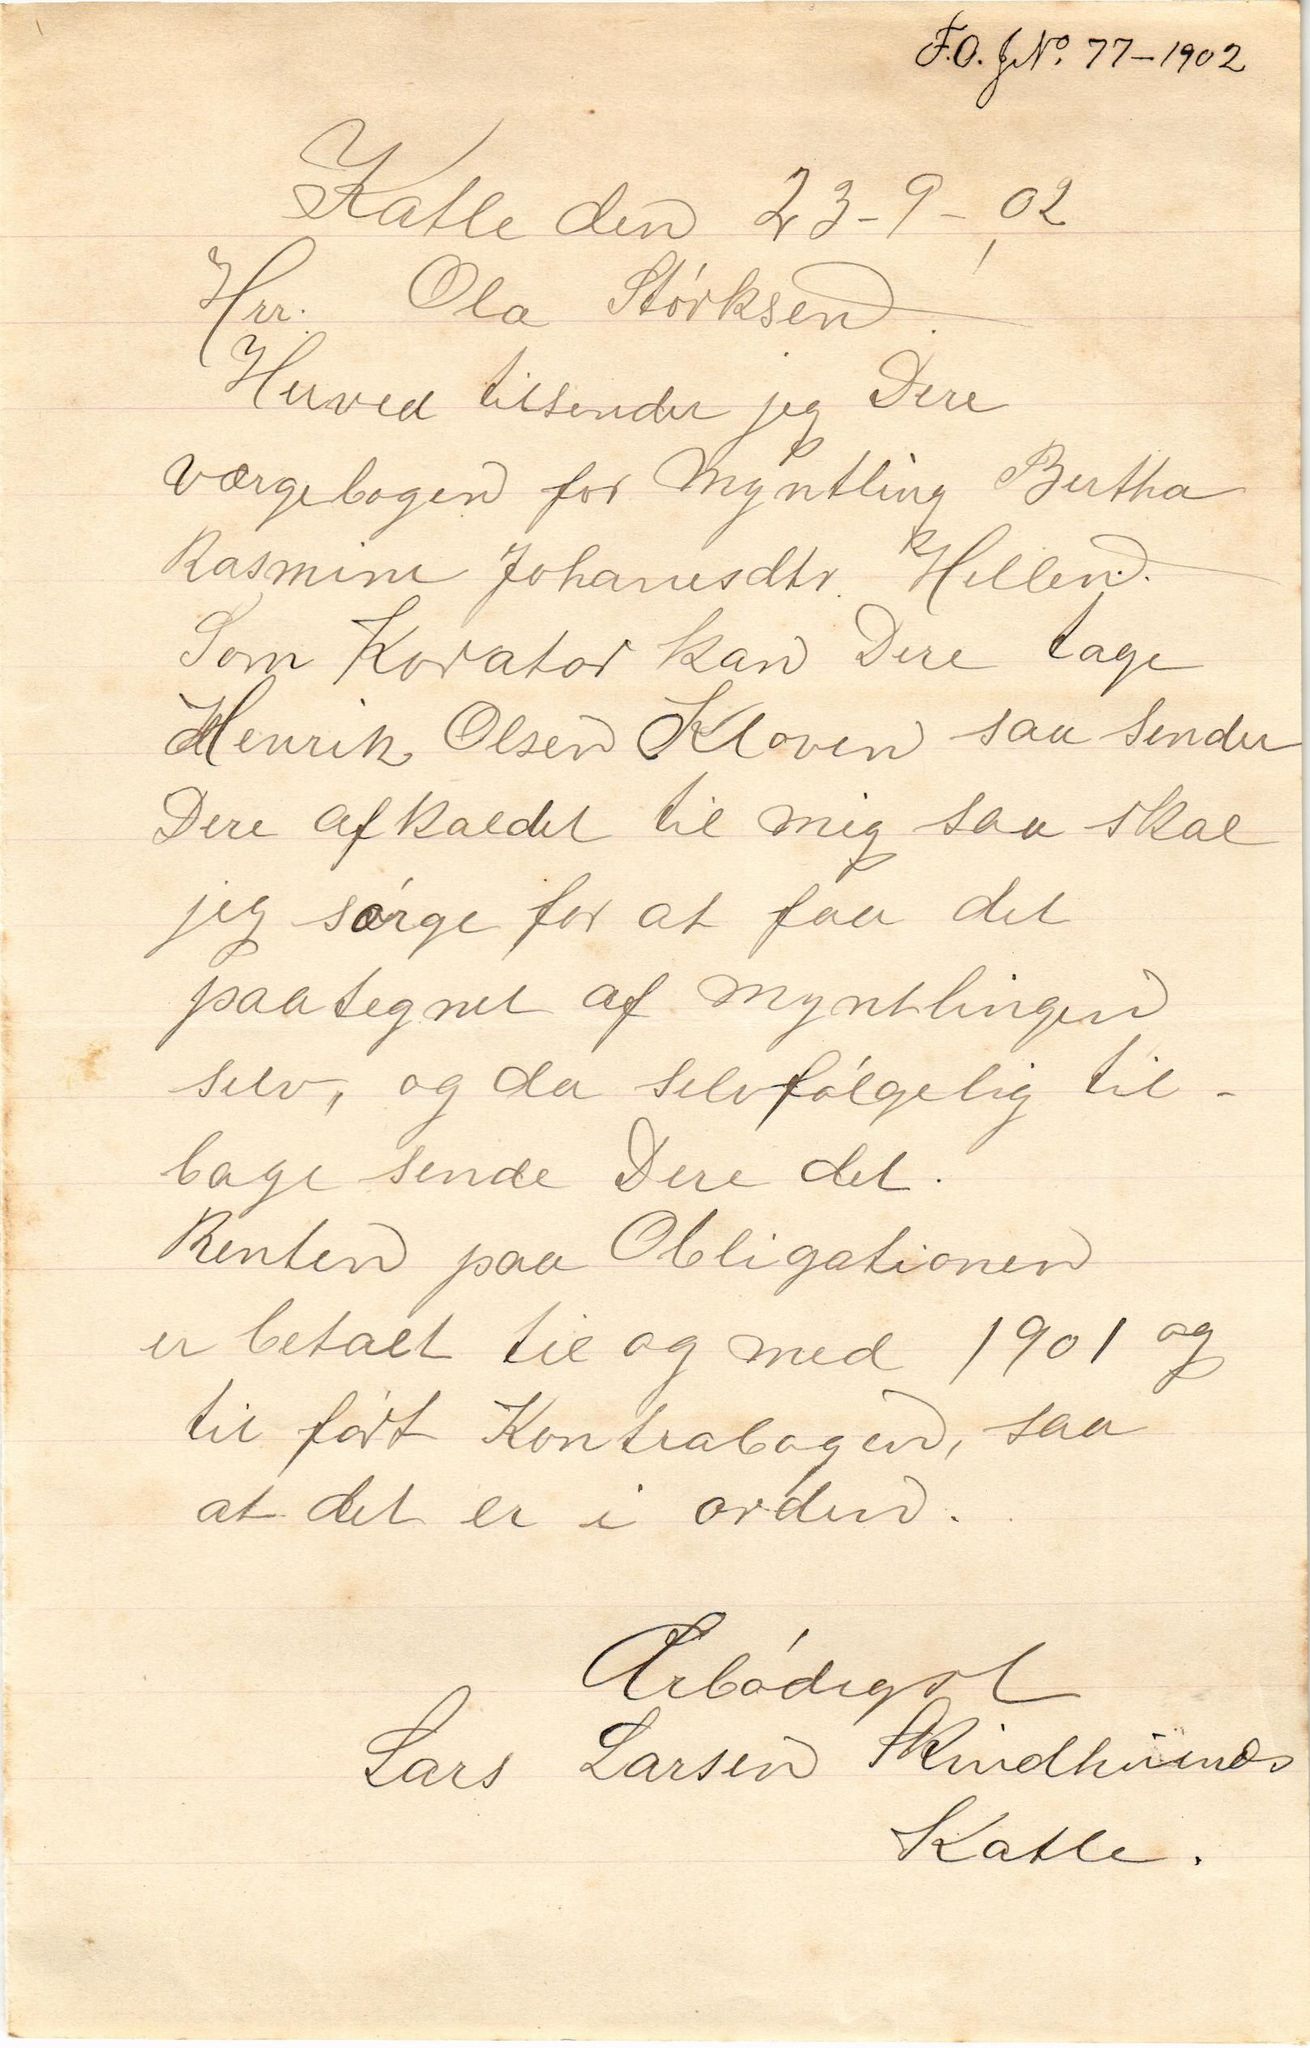 F.O. J.No. 77-1902
Katle den 23-9-02
Hrr. Ola Störksen.
Herved tilsender jeg Dere
værgebogen for Myntling Bertha
Rasmine Johanesdtr. Hellen.
Som Korator kan Dere tage
Henrik Olsen Kloven saa sender
Dere afkaldet til mig saa skal
jeg sörge for at faa det
paategnet af myntlingen
selv, og da selvfölgelig til-
bage sende Dere det.
Renten paa Obligationen
er betalt til og med 1901 og
til fört Kontrabogen, saa
at det er i orden.
Ærbödigst
Lars Larsen
Katle.